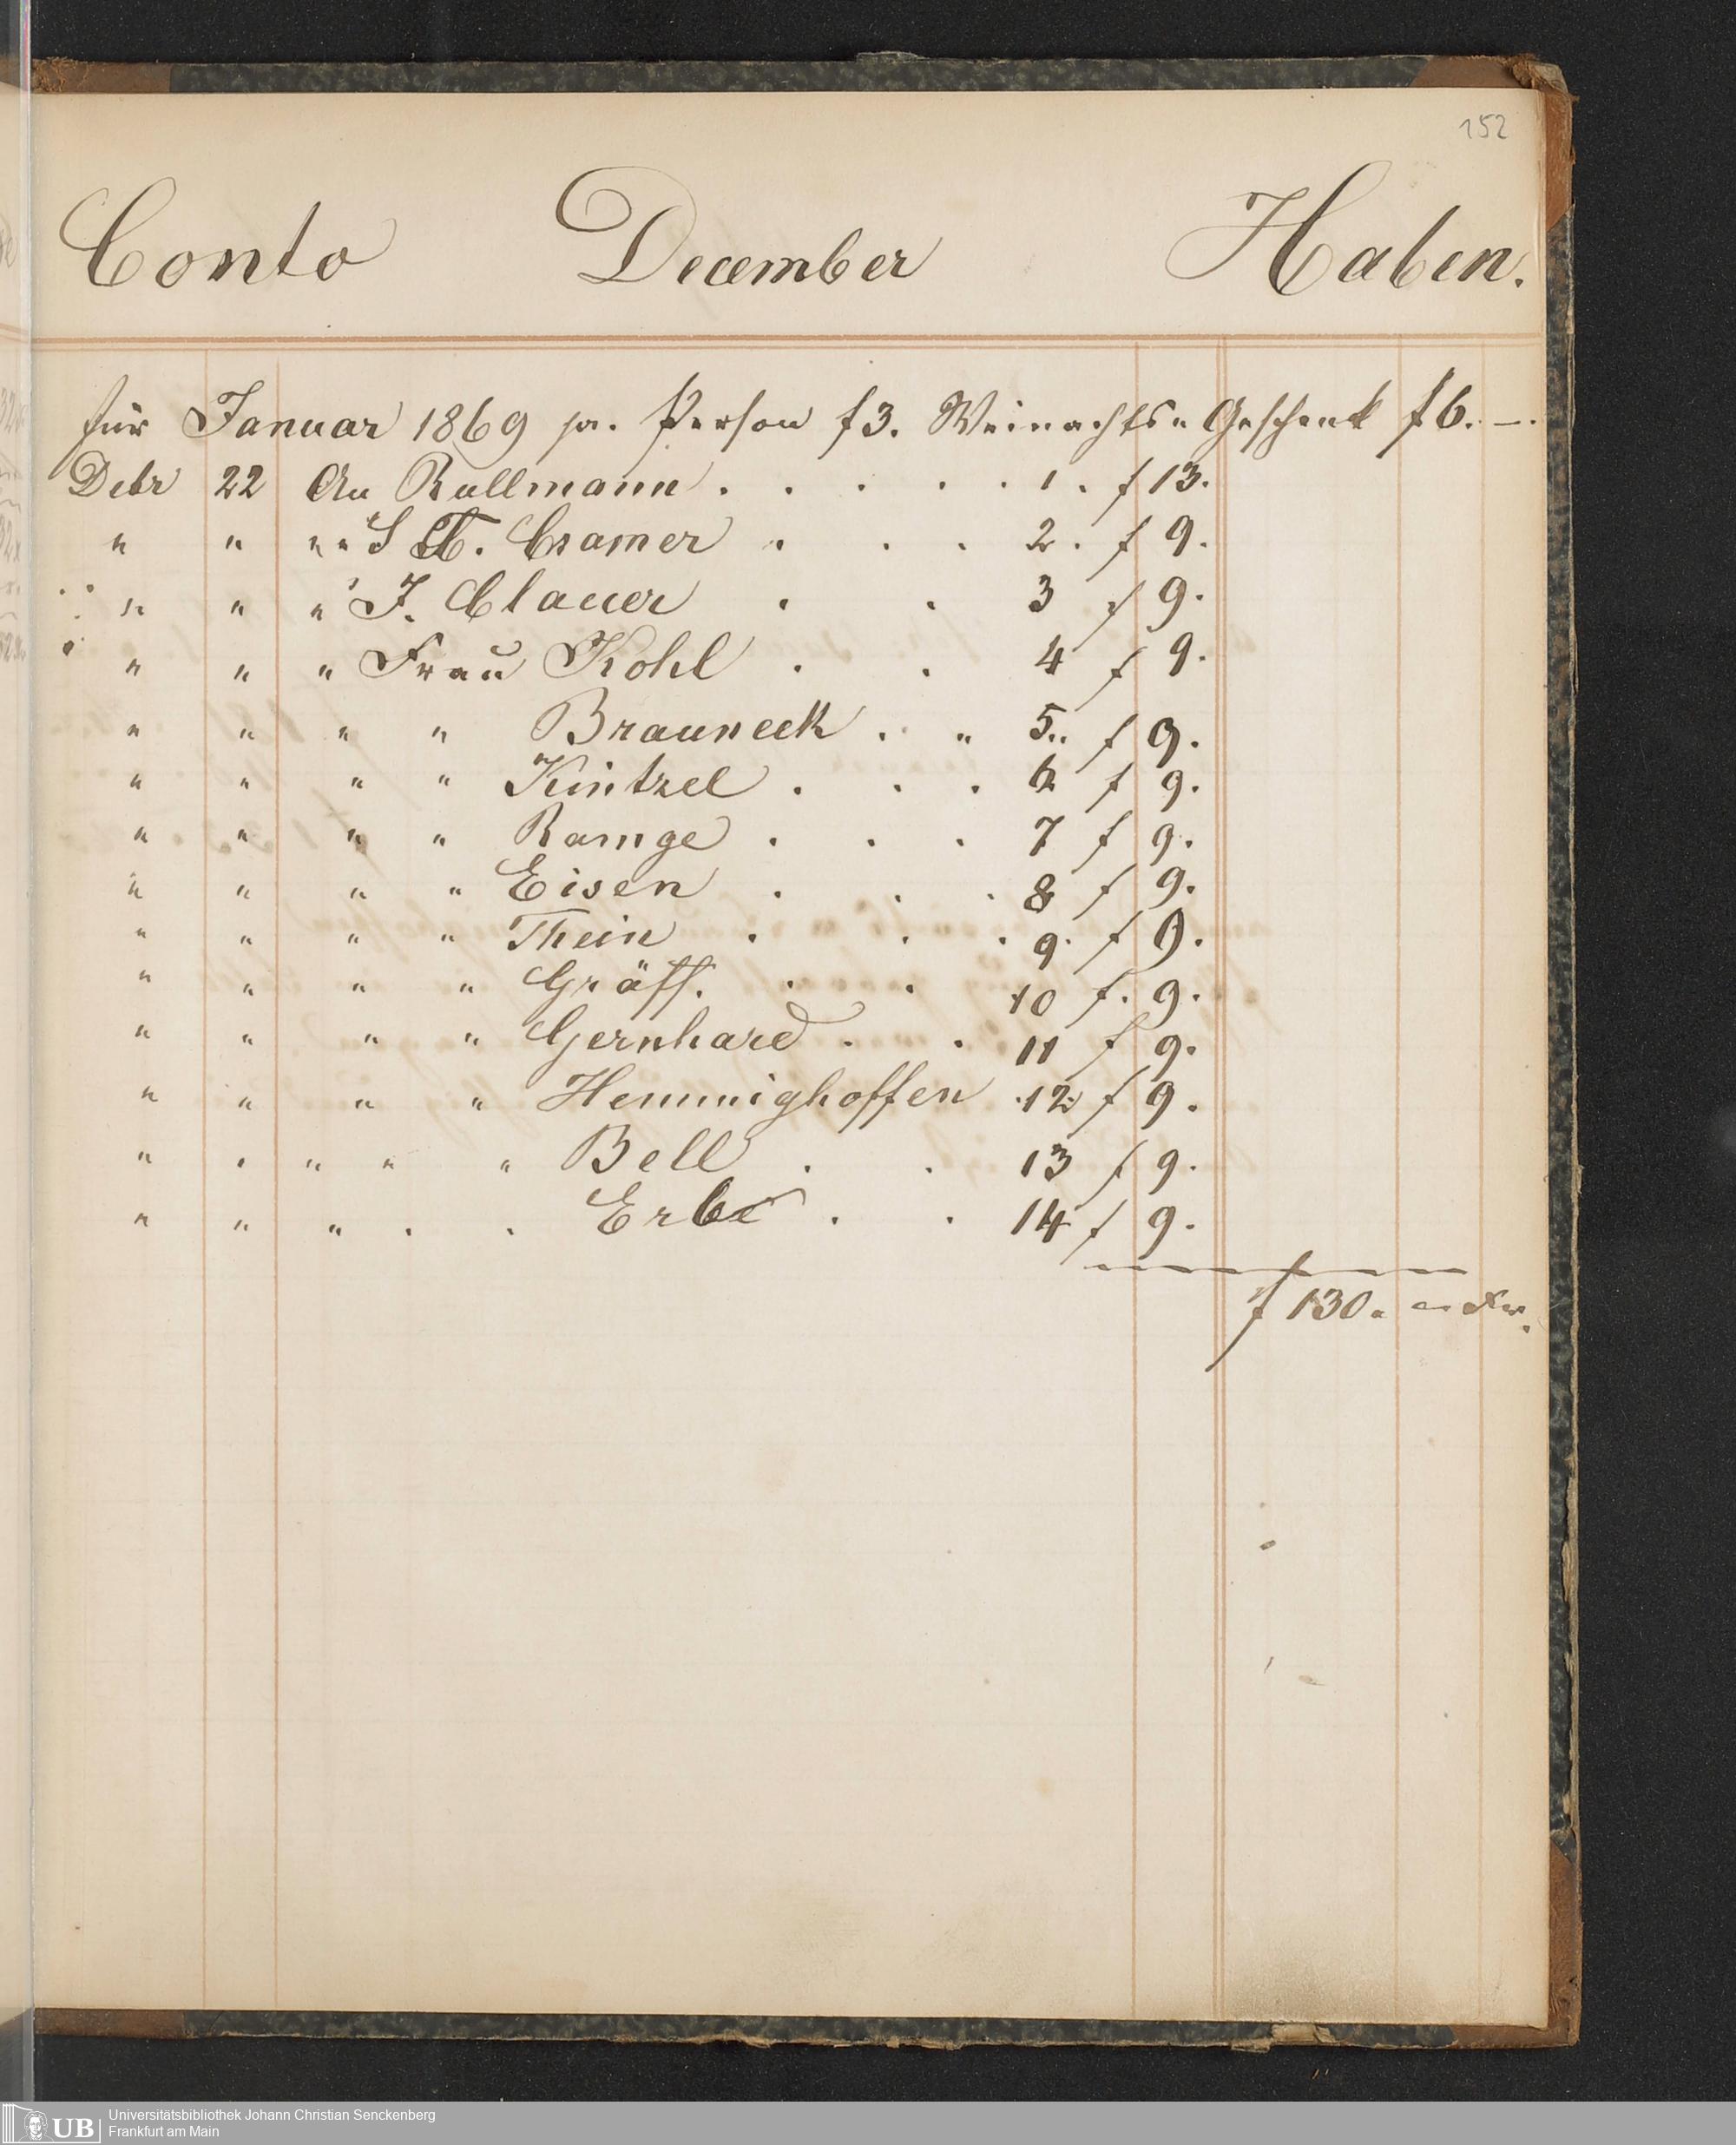 152
Conto December Haben.
für Januar 1869 pr. Person f 3. Weinachts Geschenk f 6. —.
Debr 22 An Rullmann . . . . . 1. f 13.
" " " " S . Cramer . . . 2. f 9.
" " " J. Clauer . . 3 f 9.
" " " Frau Kohl . . 4 f 9.
" " " " Brauneck . " 5.. f 9.
" " " " Kintzel . . . 6 f 9.
" " " " Ramge . . . 7 f 9.
" " " " Eisen . . . 8 f 9.
" " " " Thein . . . 9. f 9.
" " " " Gräff. . . 10 f. 9.
" " " " Gernhard . . 11 f 9.
" " " " Hemmighoffen 12 f 9.
" " " " " Bell . . 13 f 9.
" " " . . Erbe . . 14 f 9.
f 130. — Xr.
UB Universitätsbibliothek Johann Christian Senckenberg
Frankfurt am Main